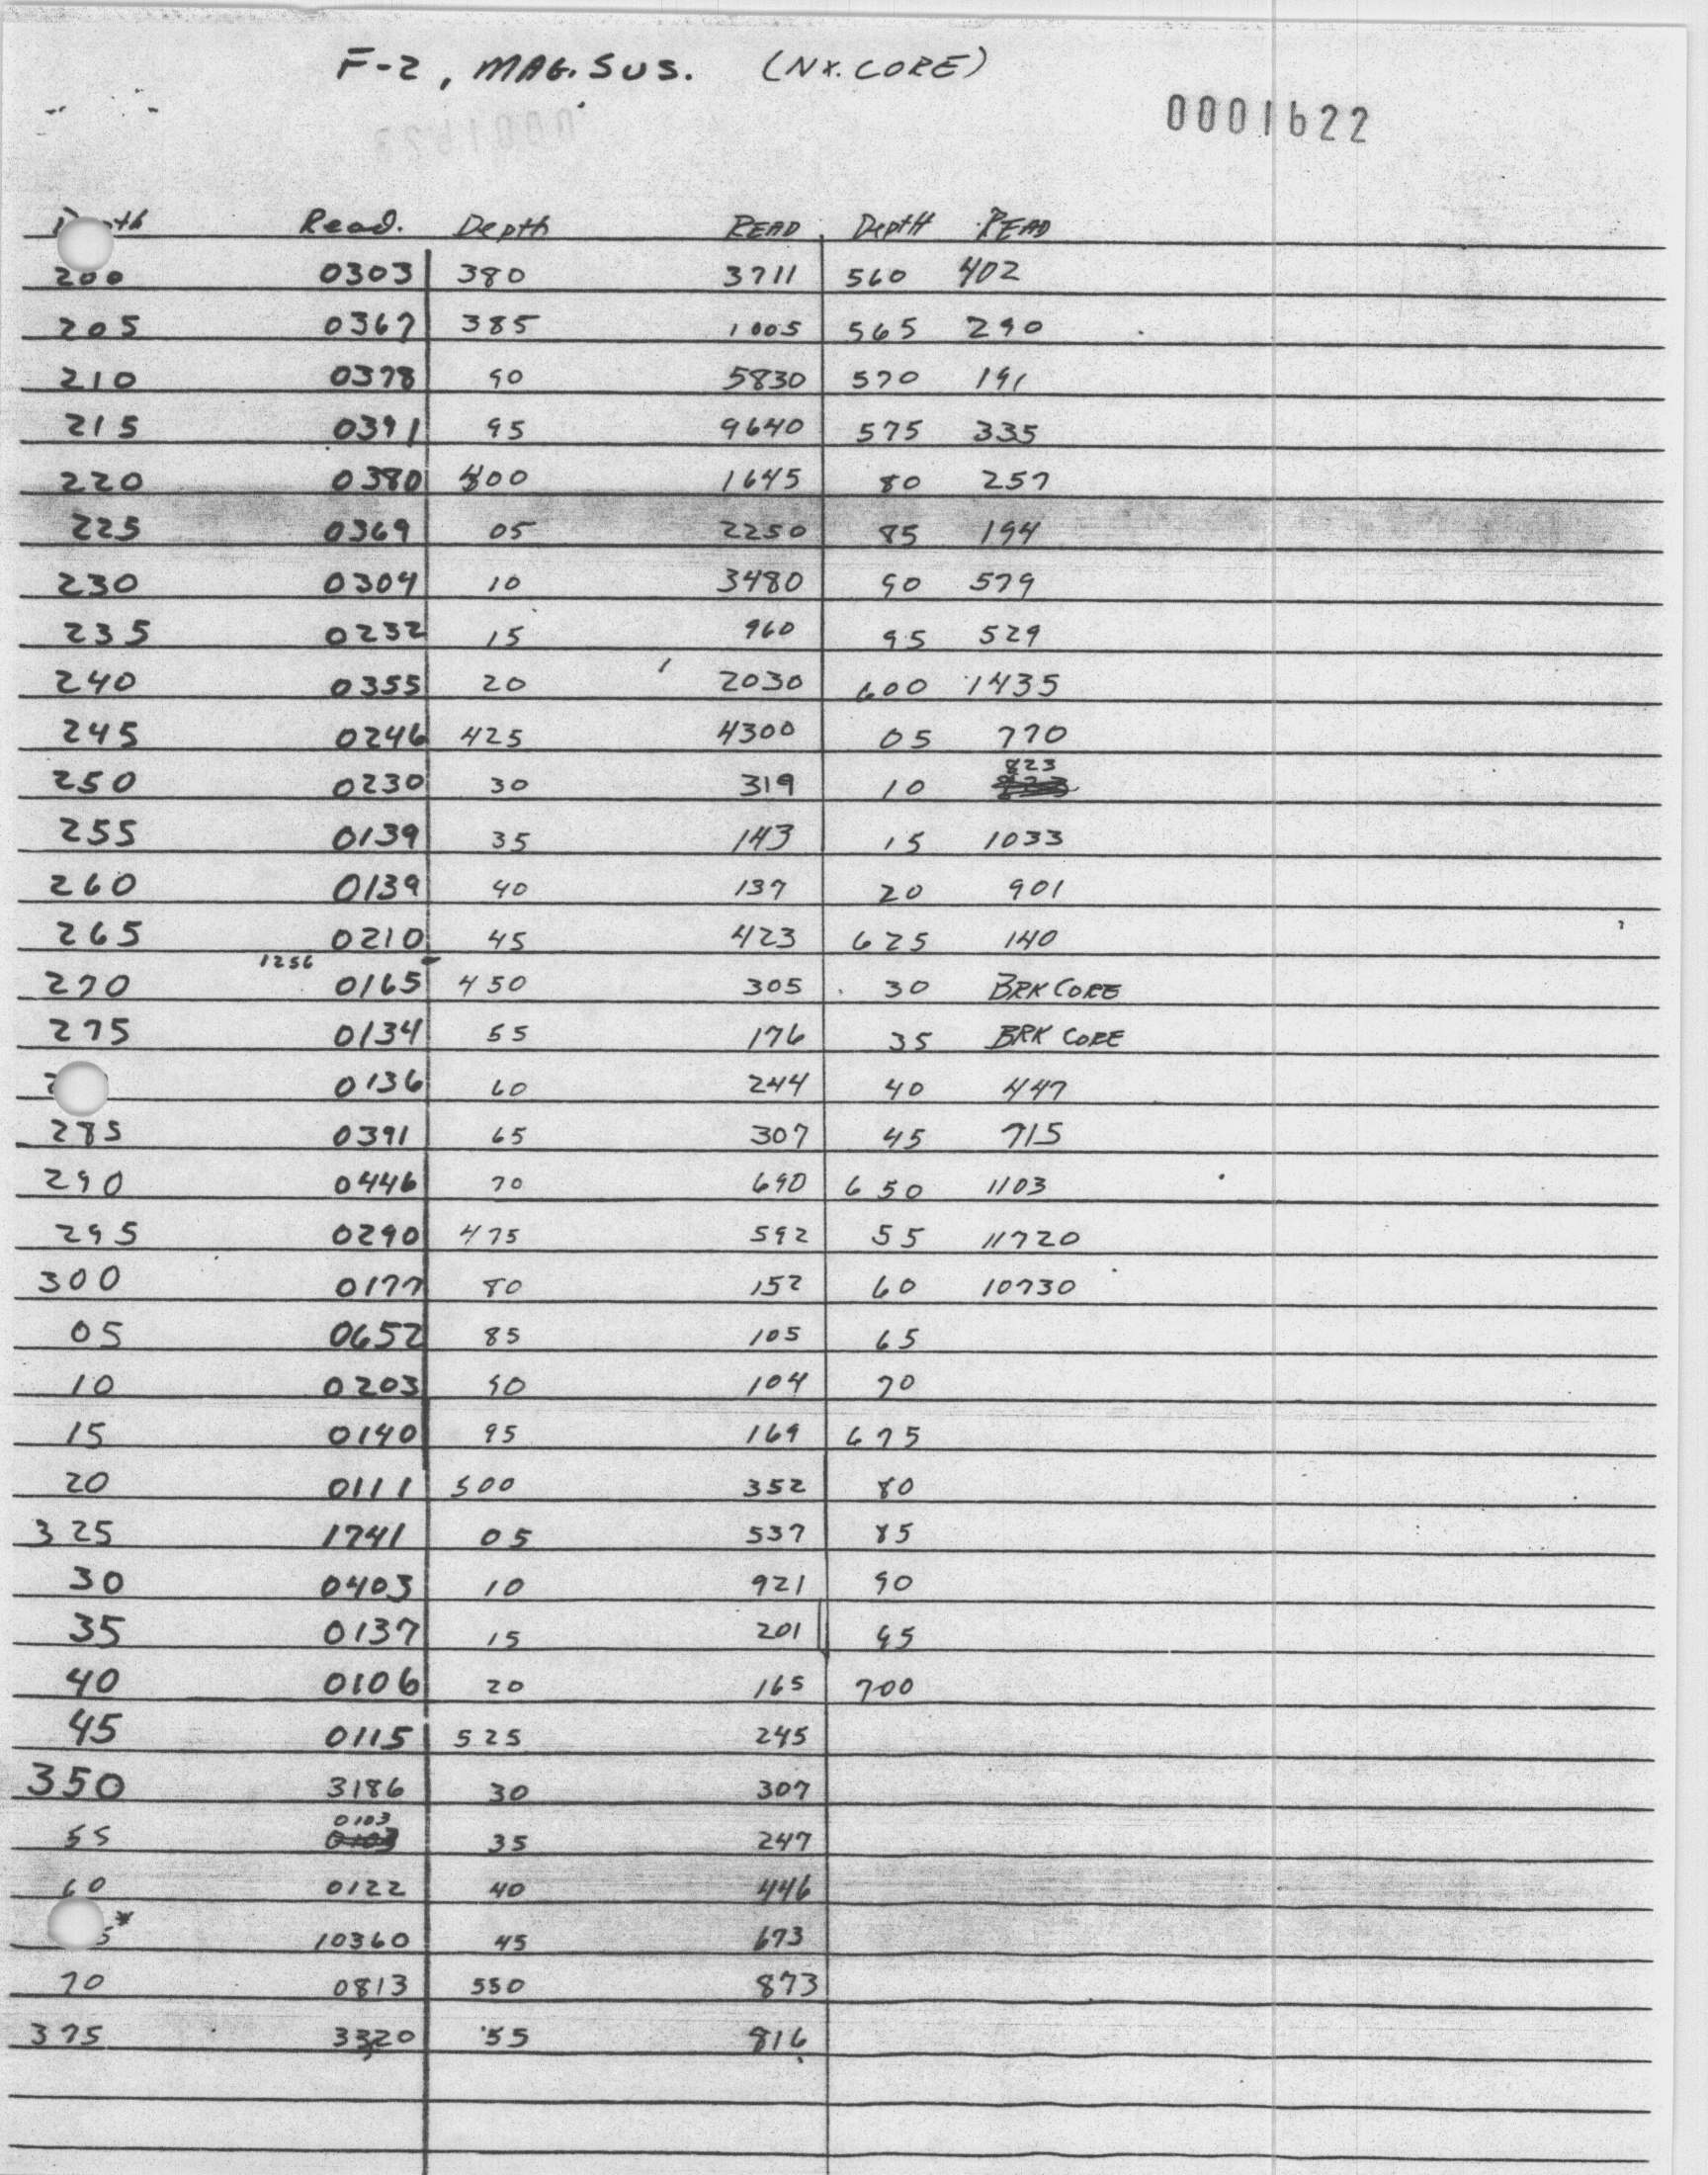 F-2, MAG. SUS. (NX. CORE)
0001622
Read. Depth READ Depth READ
200 0303 380 3711 560 402
205 0367 385 1005 565 290
210 0378 90 5830 570 191
215 0391 95 9640 575 335
220 0380 400 1645 80 257
225 0369 05 2250 85 194
230 0304 10 3480 90 579
235 0232 15 960 95 529
240 0355 20 2030 600 1435
245 0246 425 4300 05 770
823
250 0230 30 319 10
255 0139 35 143 15 1033
260 0139 40 137 20 901
265 0210 45 423 625 140
1256
270 0165 450 305 30 BRK CORE
275 0134 55 176 35 BRK CORE
0136 60 244 40 447
285 0391 65 307 45 715
290 0446 70 690 650 1103
295 0290 475 592 55 11720
300 0177 80 152 60 10730
05 0652 85 105 65
10 0203 90 104 70
15 0140 95 169 675
20 0111 500 352 80
325 1741 05 537 85
30 0403 10 921 90
35 0137 15 201 95
40 0106 20 165 700
45 0115 525 245
350 3186 30 307
0103
55 0103 35 247
60 0122 40 446
5* 10360 45 673
70 0813 550 873
375 3320 55 816